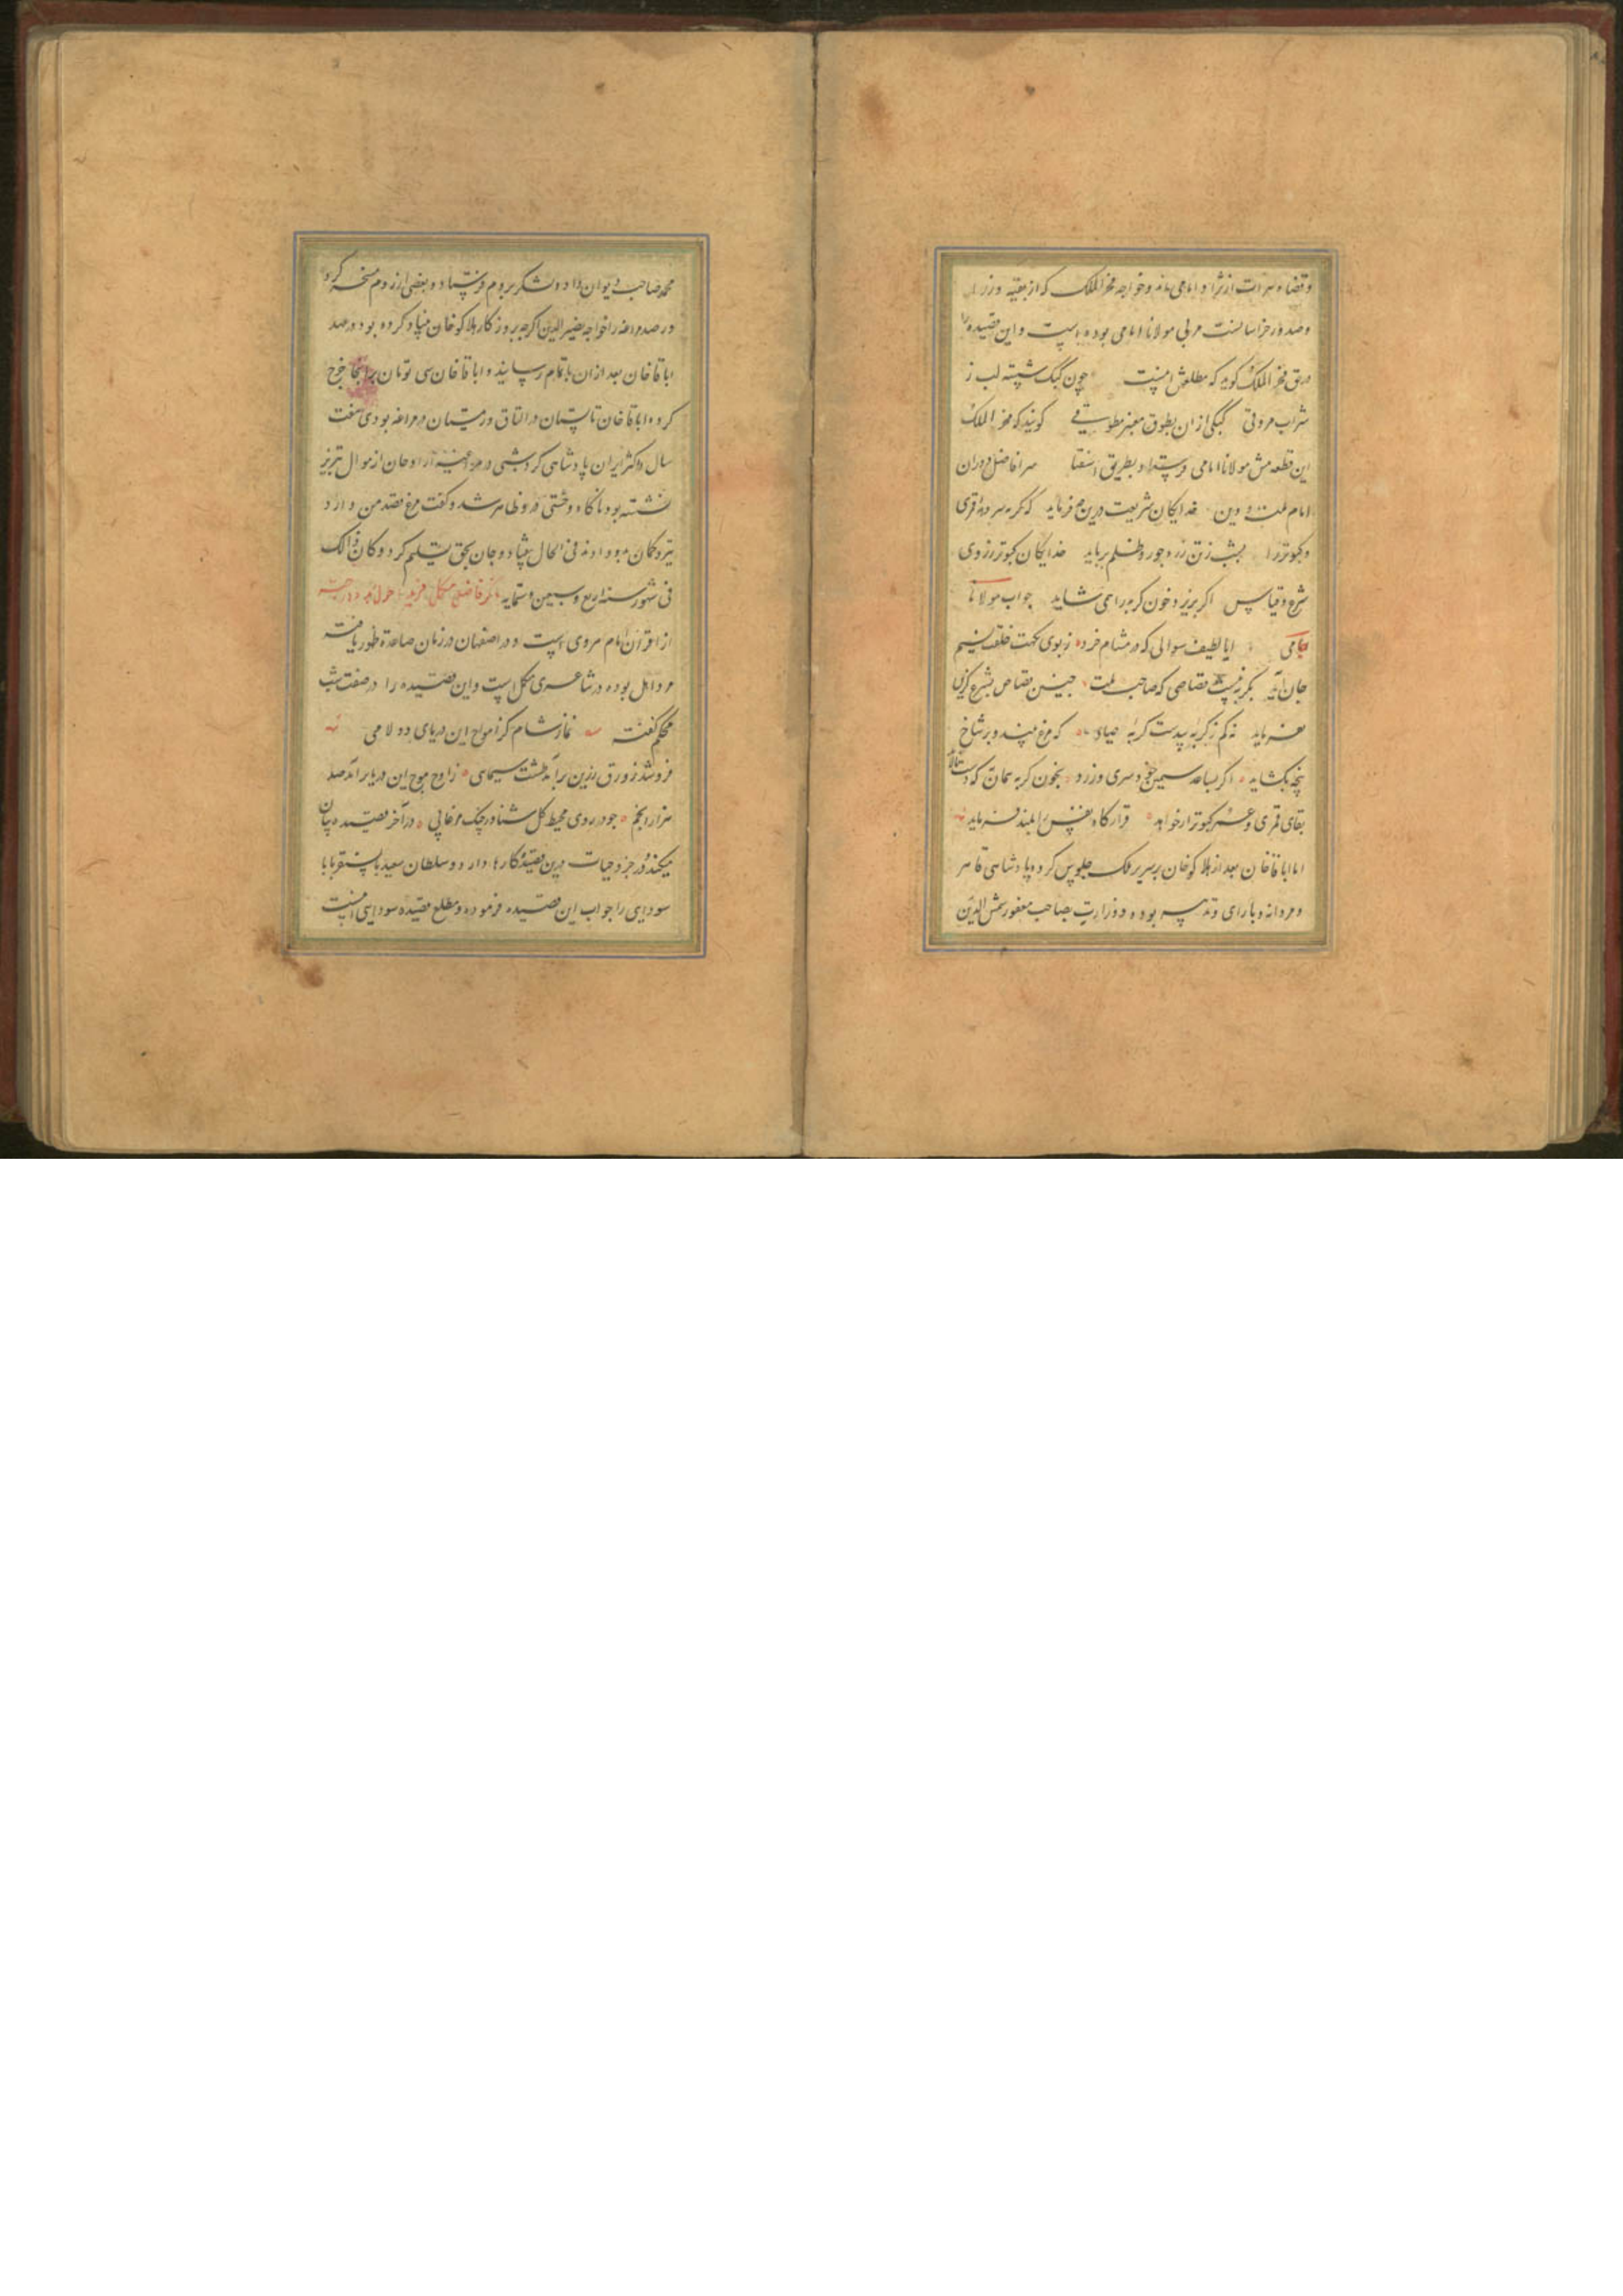 وقضاه هرات از نژاد امامی‌اند و خواجه فخر الملک که از بقیه وزرا
وصدور خراسانست مربی مولانا امامی بوده است و این قصیده را
در حق فخر الملک کوید که مطلعش اینست چون کبک شسته لب ز
شراب مروقی کبکی از ان بطوق معنبر مطوقی کویند که فخر الملک
این قطعه پیش مولانا امامی فرستاد و بطریق استفتا سر افاضل دوران
امام ملت و دین خدایکان شریعت درین چه فرماید که کربه سر قمری
و کبوتر را بشب ز تن زده جور و ظلم برباید خدایکان کبوتر ز روی
شرع و قیاس اکر بریزد خون کربه را می شاید جواب مولانا
امامی ایا لطیف سوالی که در مشام خرد ز بوی نکهت خلقت نسیم
جان آید بکربه نیست قصاصی که صاحب ملت چنین قصاص بشرع کزین
بفرماید نه کم ز کربه بیدست کربه صیاد که مرغ بیند و بر شاخ
پنجه بکشاید اکر بساعد سیمین خود سری دارد بخون کربه همان به که دست نالاید
بقای قمری و عمر کبوتر ار خواهد قرار کاه قفس را بلند فرماید
اما اباقا خان بعد از هلاکو خان بر سریر ملک جلوس کرد و پادشاهی قاهر
و مردانه و با رای و تدبیر بوده و وزارت بصاحب مغفور شمس الدین
محمد صاحب دیوان داد و لشکر بروم فرستاد و بعضی از روم مسخر کرد
و رصد مراغه را خواجه نصیر الدین اکرچه بروزکار هلاکو خان بنیاد کرده بود در عهد
اباقا خان بعد از ان باتمام رسانید و اباقا خان سی تومان بر انجا خرج
کرد و اباقا خان تابستان در الاتاق و زمستان در مراغه بودی هفت
سال در اکثر ایران پادشاهی کرد شبی در اوجان از اعمال تبریز
نشسته بود ناکاه وحشتی در و ظاهر شد و کفت مرغ قصد من دارد
تیر و کمان بدو دادند فی الحال بیفتاد و جان بحق تسلیم کرد و کان ذالک
فی شهور سنه اربع و سبعین و ستمایه ذکر فاضل مکمل فرید احول
از اقران امام هروی است و در اصفهان در زمان صاعد ظهور یافته
مرد اهل بوده در شاعری مکمل است و این قصیده را در صفت شب
محکم کفته نماز شام کز امواج این دریای دولابی
فرو شد زورق زرین بر آمد طشت سیمابی ز اوج موج این دریا بر آمد صد
هزار انجم چو در روی محیط کل شناور چنک مرغابی در آخر قصیده بیان
میکند در جر و حیات درین قصیده کارها دارد و سلطان سعید بایسنقر بابا
سودایی را جواب این قصیده فرموده و مطلع قصیده سودایی اینست